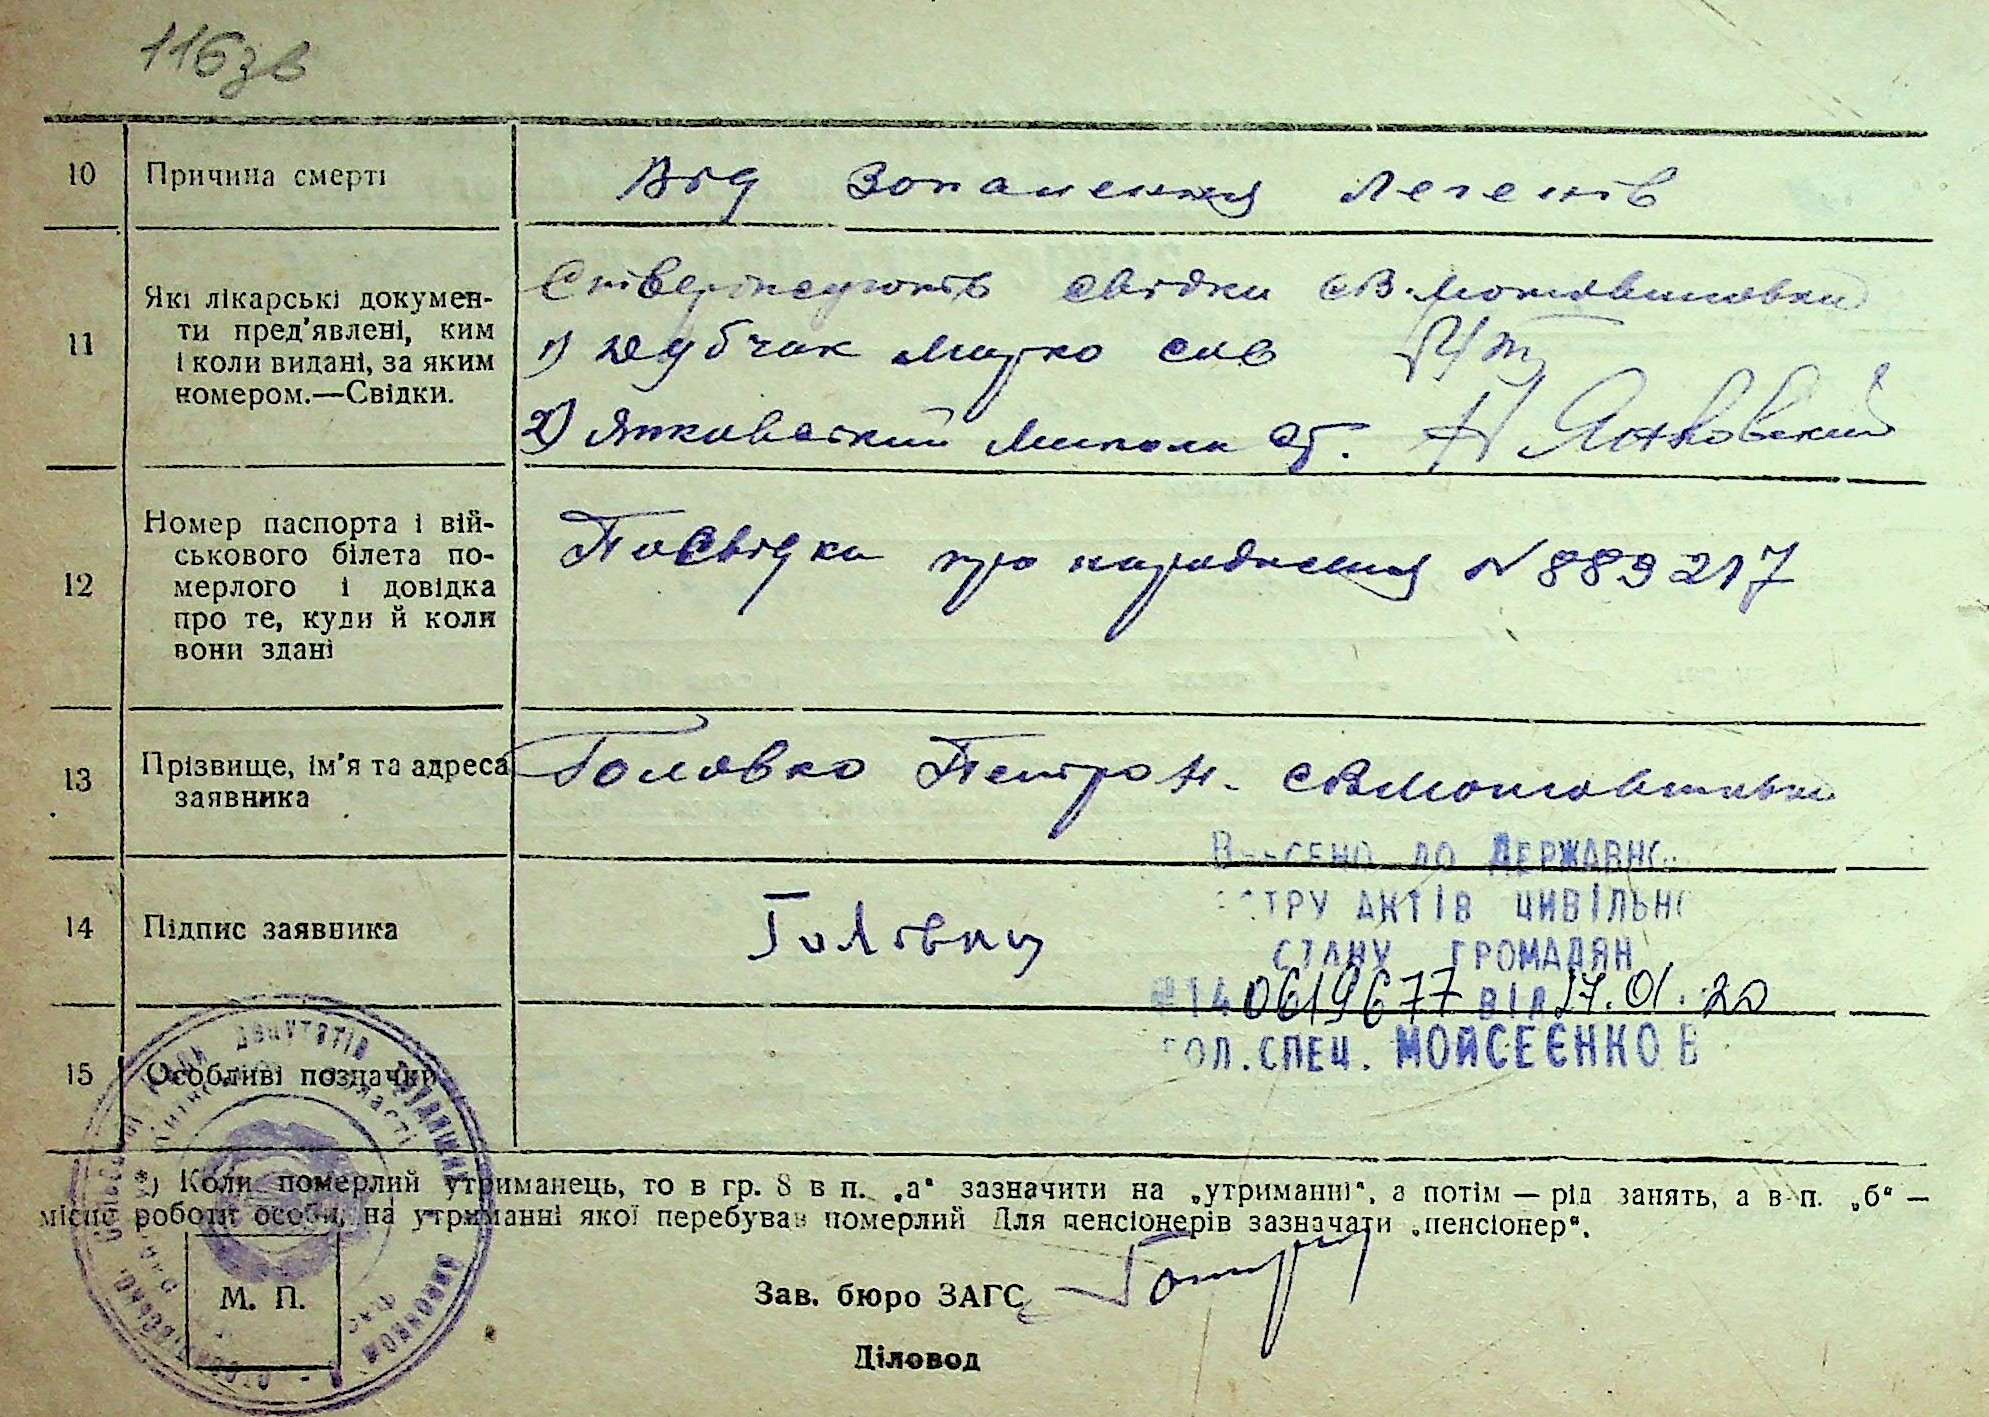 116зв
10 Причина смерті Від Запалення легенів
11 Які лікарські докумен-
ти пред'явлені, ким
і коли видані, за яким
номером.—Свідки.
Стверджують свідки с В. Мотовилівки
1) Дубчак Марко Сав
2) Янковский Микола Ст. Н Янковский
12 Номер паспорта і вій-
ськового білета по-
мерлого і довідка
про те, куди й коли
вони здані
Посвідка про народження № 889217
13 Прізвище, ім'я та адреса
заявника
Головко Петро Н. с В Мотовилівка
14 Підпис заявника
ДО ДЕРЖАВНО
АКТІВ ЦИВІЛЬНО
СТАНУ ГРОМАДЯН
0619677 ВІД 17.01.20
ГОЛ. СПЕЦ. МОЙСЕЄНКО В
15 Особливі позначки
*) Коли померлий утриманець, то в гр. 8 в п. „а“ зазначити на „утриманні“, а потім — рід занять, а в п. „б“ —
місце роботи особи, на утриманні якої перебував померлий Для пенсіонерів зазначати „пенсіонер“.
М. П.
Зав. бюро ЗАГС
Діловод
депутатів трудящих
області